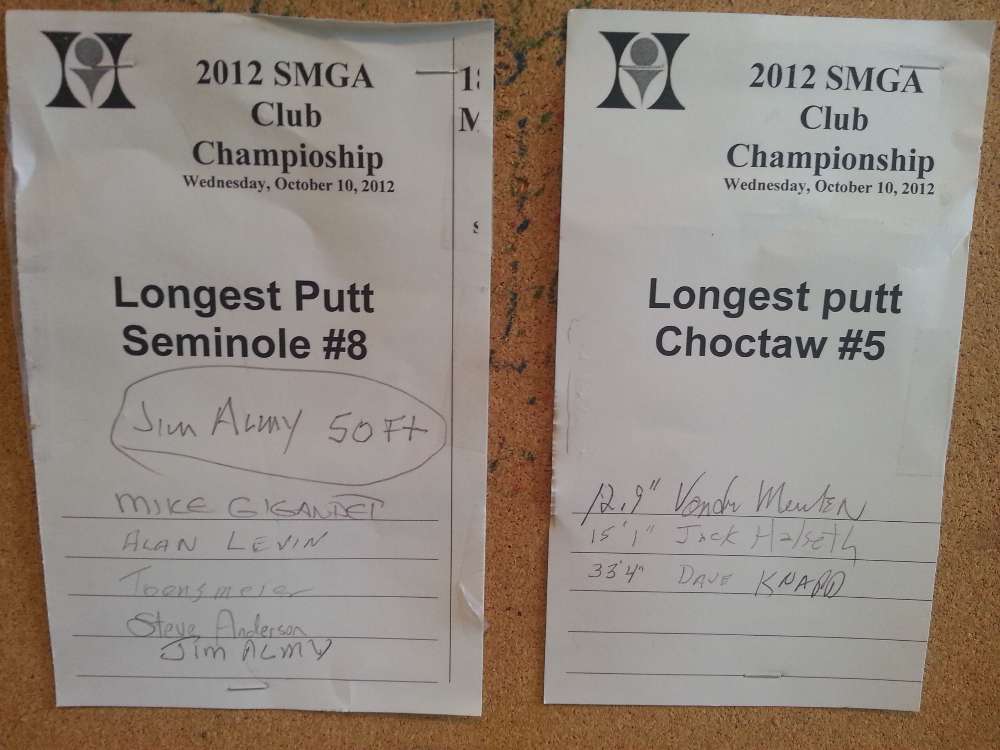 2012 SMGA
Club
Champioship
Wednesday, October 10, 2012
Longest Putt
Seminole #8
Jim Almy 50 Ft
MIKE GIGANDET
ALAN LEVIN
Toensmeier
Steve Anderson
Jim ALMY
2012 SMGA
Club
Championship
Wednesday, October 10, 2012
Longest putt
Choctaw #5
12.9"
15'1" Jack Halseth
33'4" DAVE KNAPP